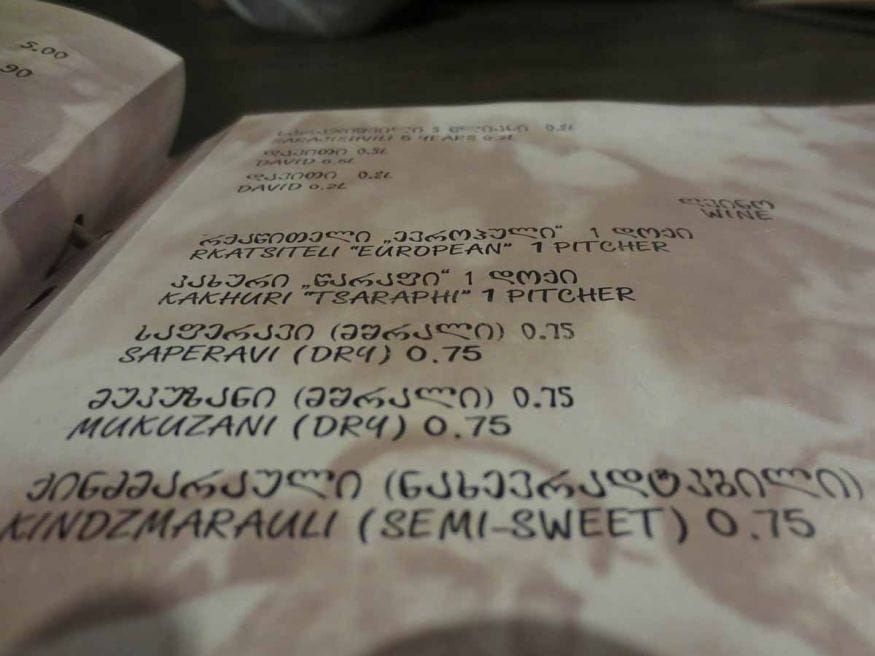 5.00
90
სარაჯიშვილი 5 წლიანი 0.2L
SARAJISHVILI 5 YEARS 0.2L
დავითი 0.5L
DAVID 0.5L
დავითი 0.2L
DAVID 0.2L
ღვინო
WINE
რქაწითელი „ევროპული“ 1 დოქი
RKATSITELI "EUROPEAN" 1 PITCHER
კახური „წარაფი“ 1 დოქი
KAKHURI "TSARAPHI" 1 PITCHER
საფერავი (მშრალი) 0.75
SAPERAVI (DRY) 0.75
მუკუზანი (მშრალი) 0.75
MUKUZANI (DRY) 0.75
ქინძმარაული (ნახევრადტკბილი)
KINDZMARAULI (SEMI-SWEET) 0.75